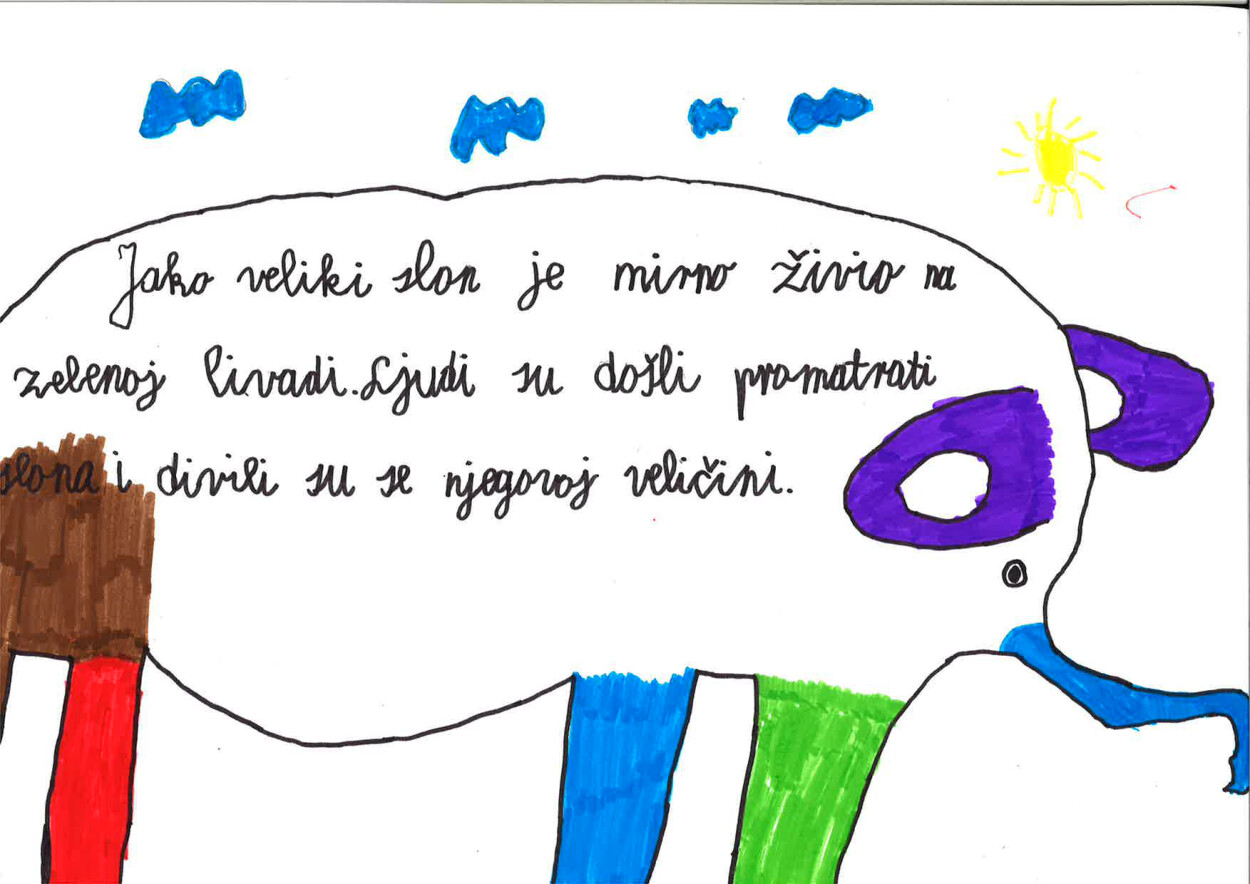 Jako veliki slon je mirno živio na
zelenoj livadi. Ljudi su došli promatrati
slona i divili su se njegovoj veličini.